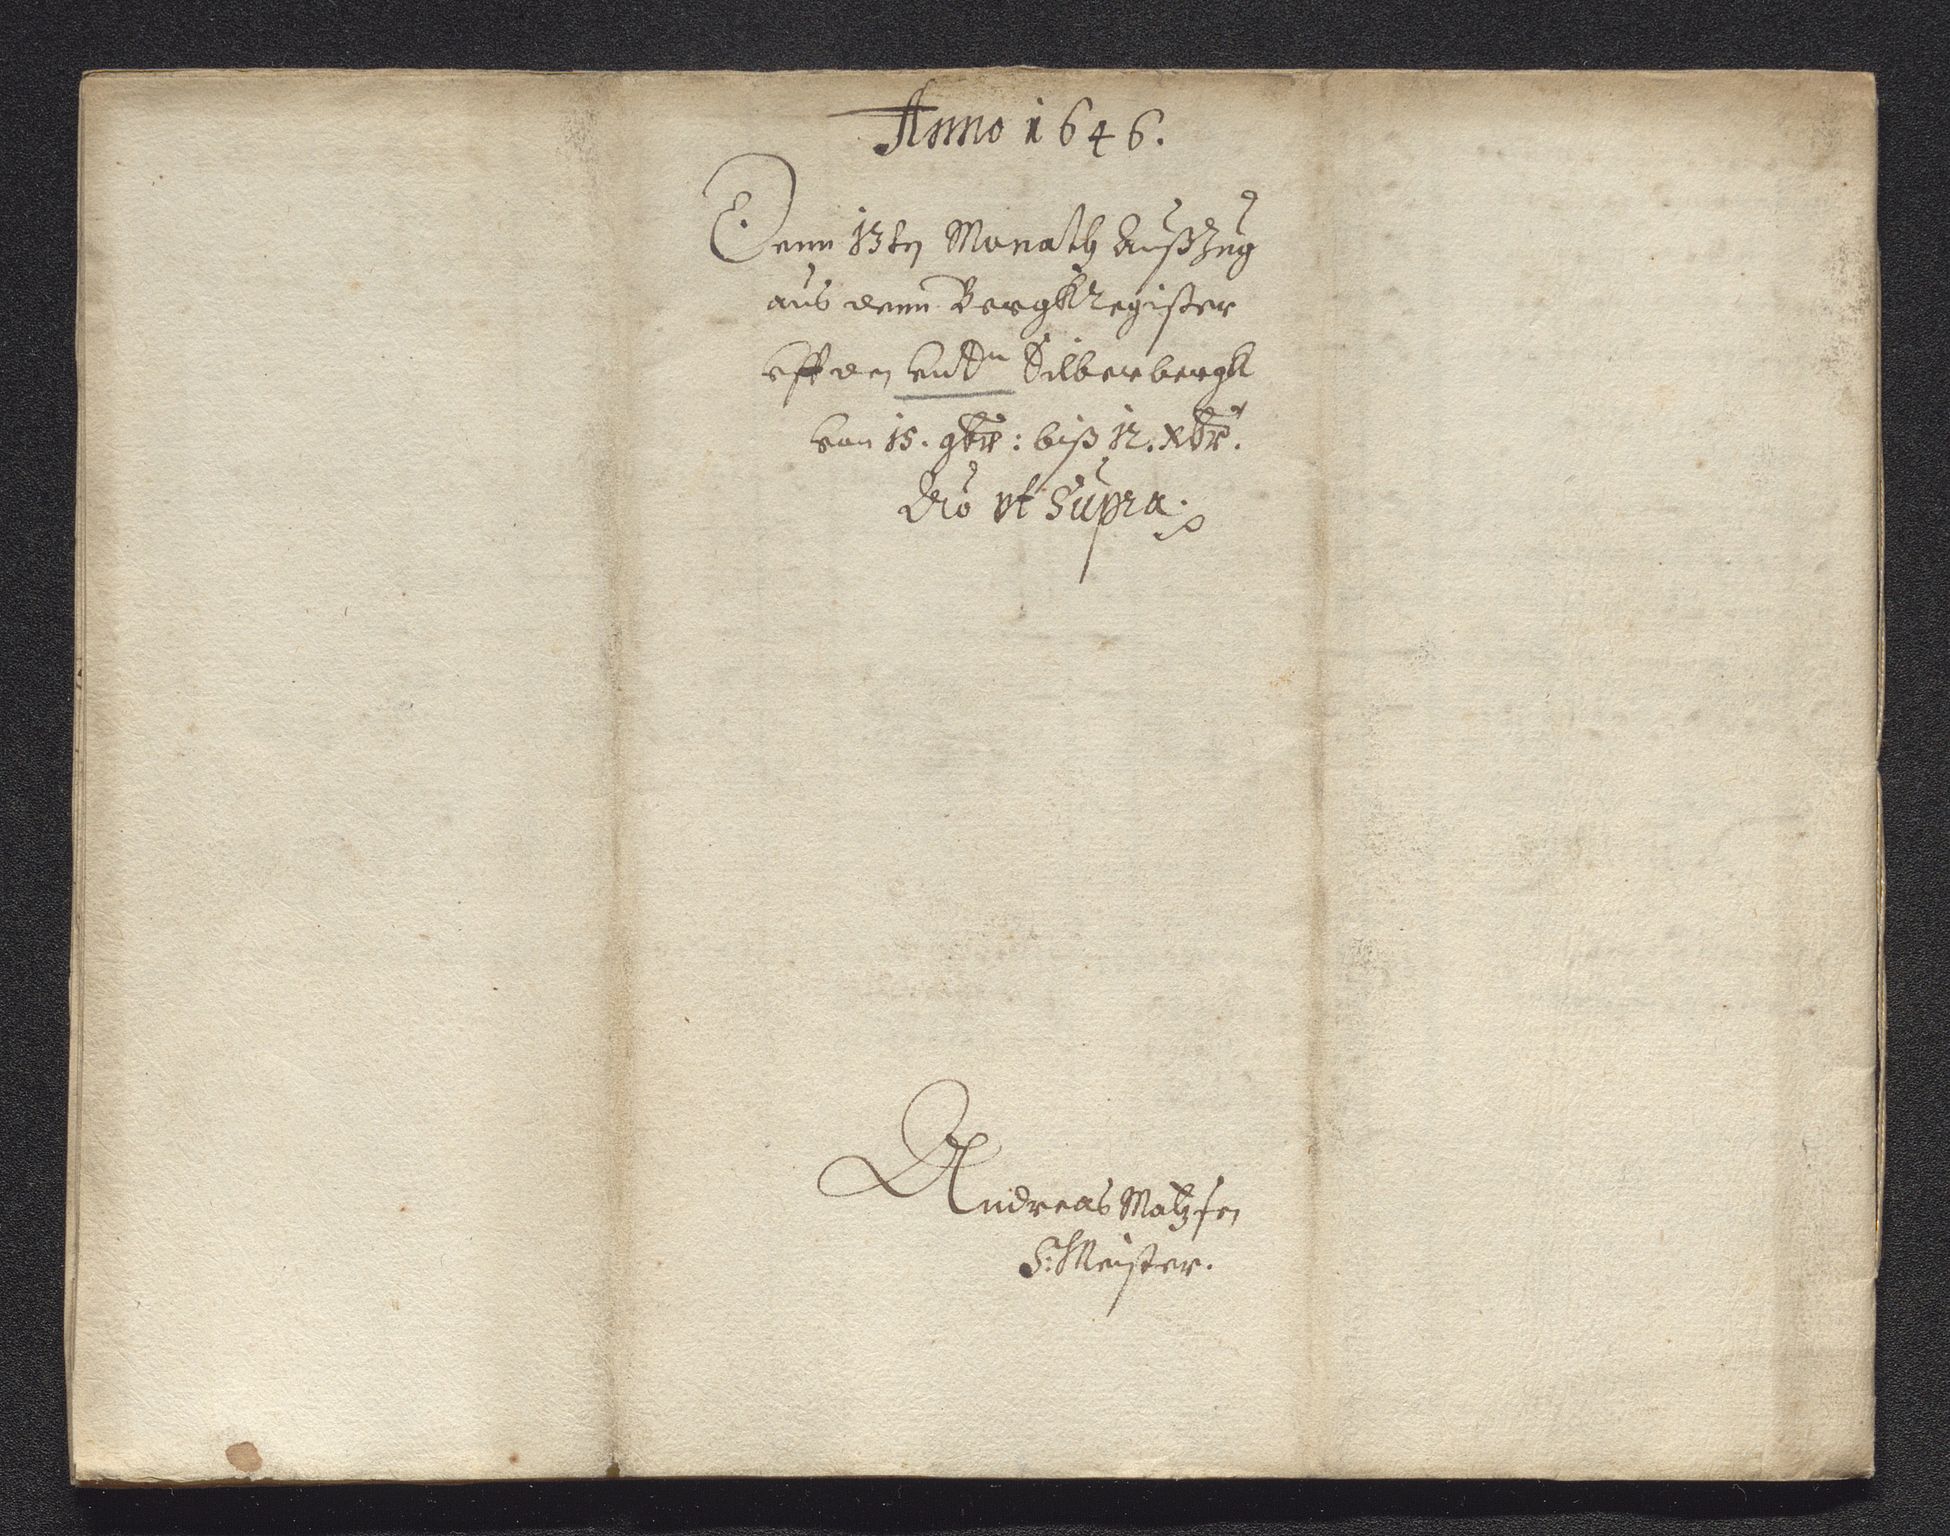 Anno 1646.
Denn 13ten Monath Außzug
aus denn Bergk Register
vff den Silberbergk
von 15. 9br: biß 12. Xbr.
Ao vt Supra.
Andreas Matzsen
S: Meister.